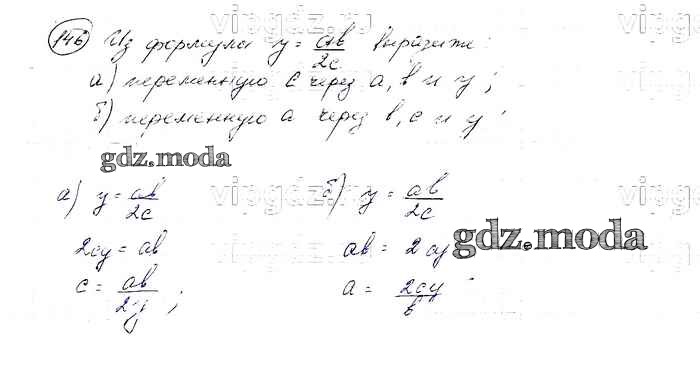 146 Из формулы y = ab/2c выразите:
а) переменную c через a, b и y;
б) переменную a через b, c и y
gdz.moda
а) y = ab/2c
2cy = ab
c = ab/2y;
б) y = ab/2c
ab = 2cy
a = 2cy/b
gdz.moda
vipgdz.ru